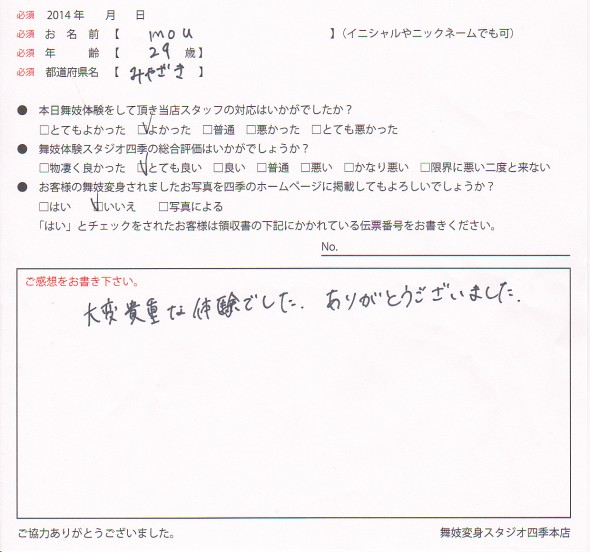 必須 2014 年 月 日
必須 お 名 前 【 mou 】（イニシャルやニックネームでも可）
必須 年 齢 【 29 歳】
必須 都道府県名 【 みやざき 】
● 本日舞妓体験をして頂き当店スタッフの対応はいかがでしたか？
□とてもよかった ☑よかった □普通 □悪かった □とても悪かった
● 舞妓体験スタジオ四季の総合評価はいかがでしょうか？
□物凄く良かった ☑とても良い □良い □普通 □悪い □かなり悪い □限界に悪い二度と来ない
● お客様の舞妓変身されましたお写真を四季のホームページに掲載してもよろしいでしょうか？
□はい ☑いいえ □写真による
「はい」とチェックをされたお客様は領収書の下記にかかれている伝票番号をお書きください。
No.
ご感想をお書き下さい。
大変貴重な体験でした。ありがとうございました。
ご協力ありがとうございました。
舞妓変身スタジオ四季本店